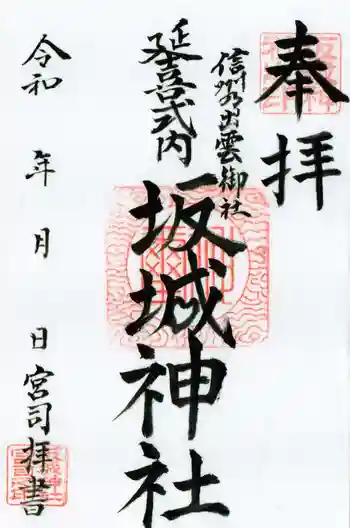 奉拝
信州乃出雲御社
延喜式内
坂城神社
令和　年　月　日
宮司拝書